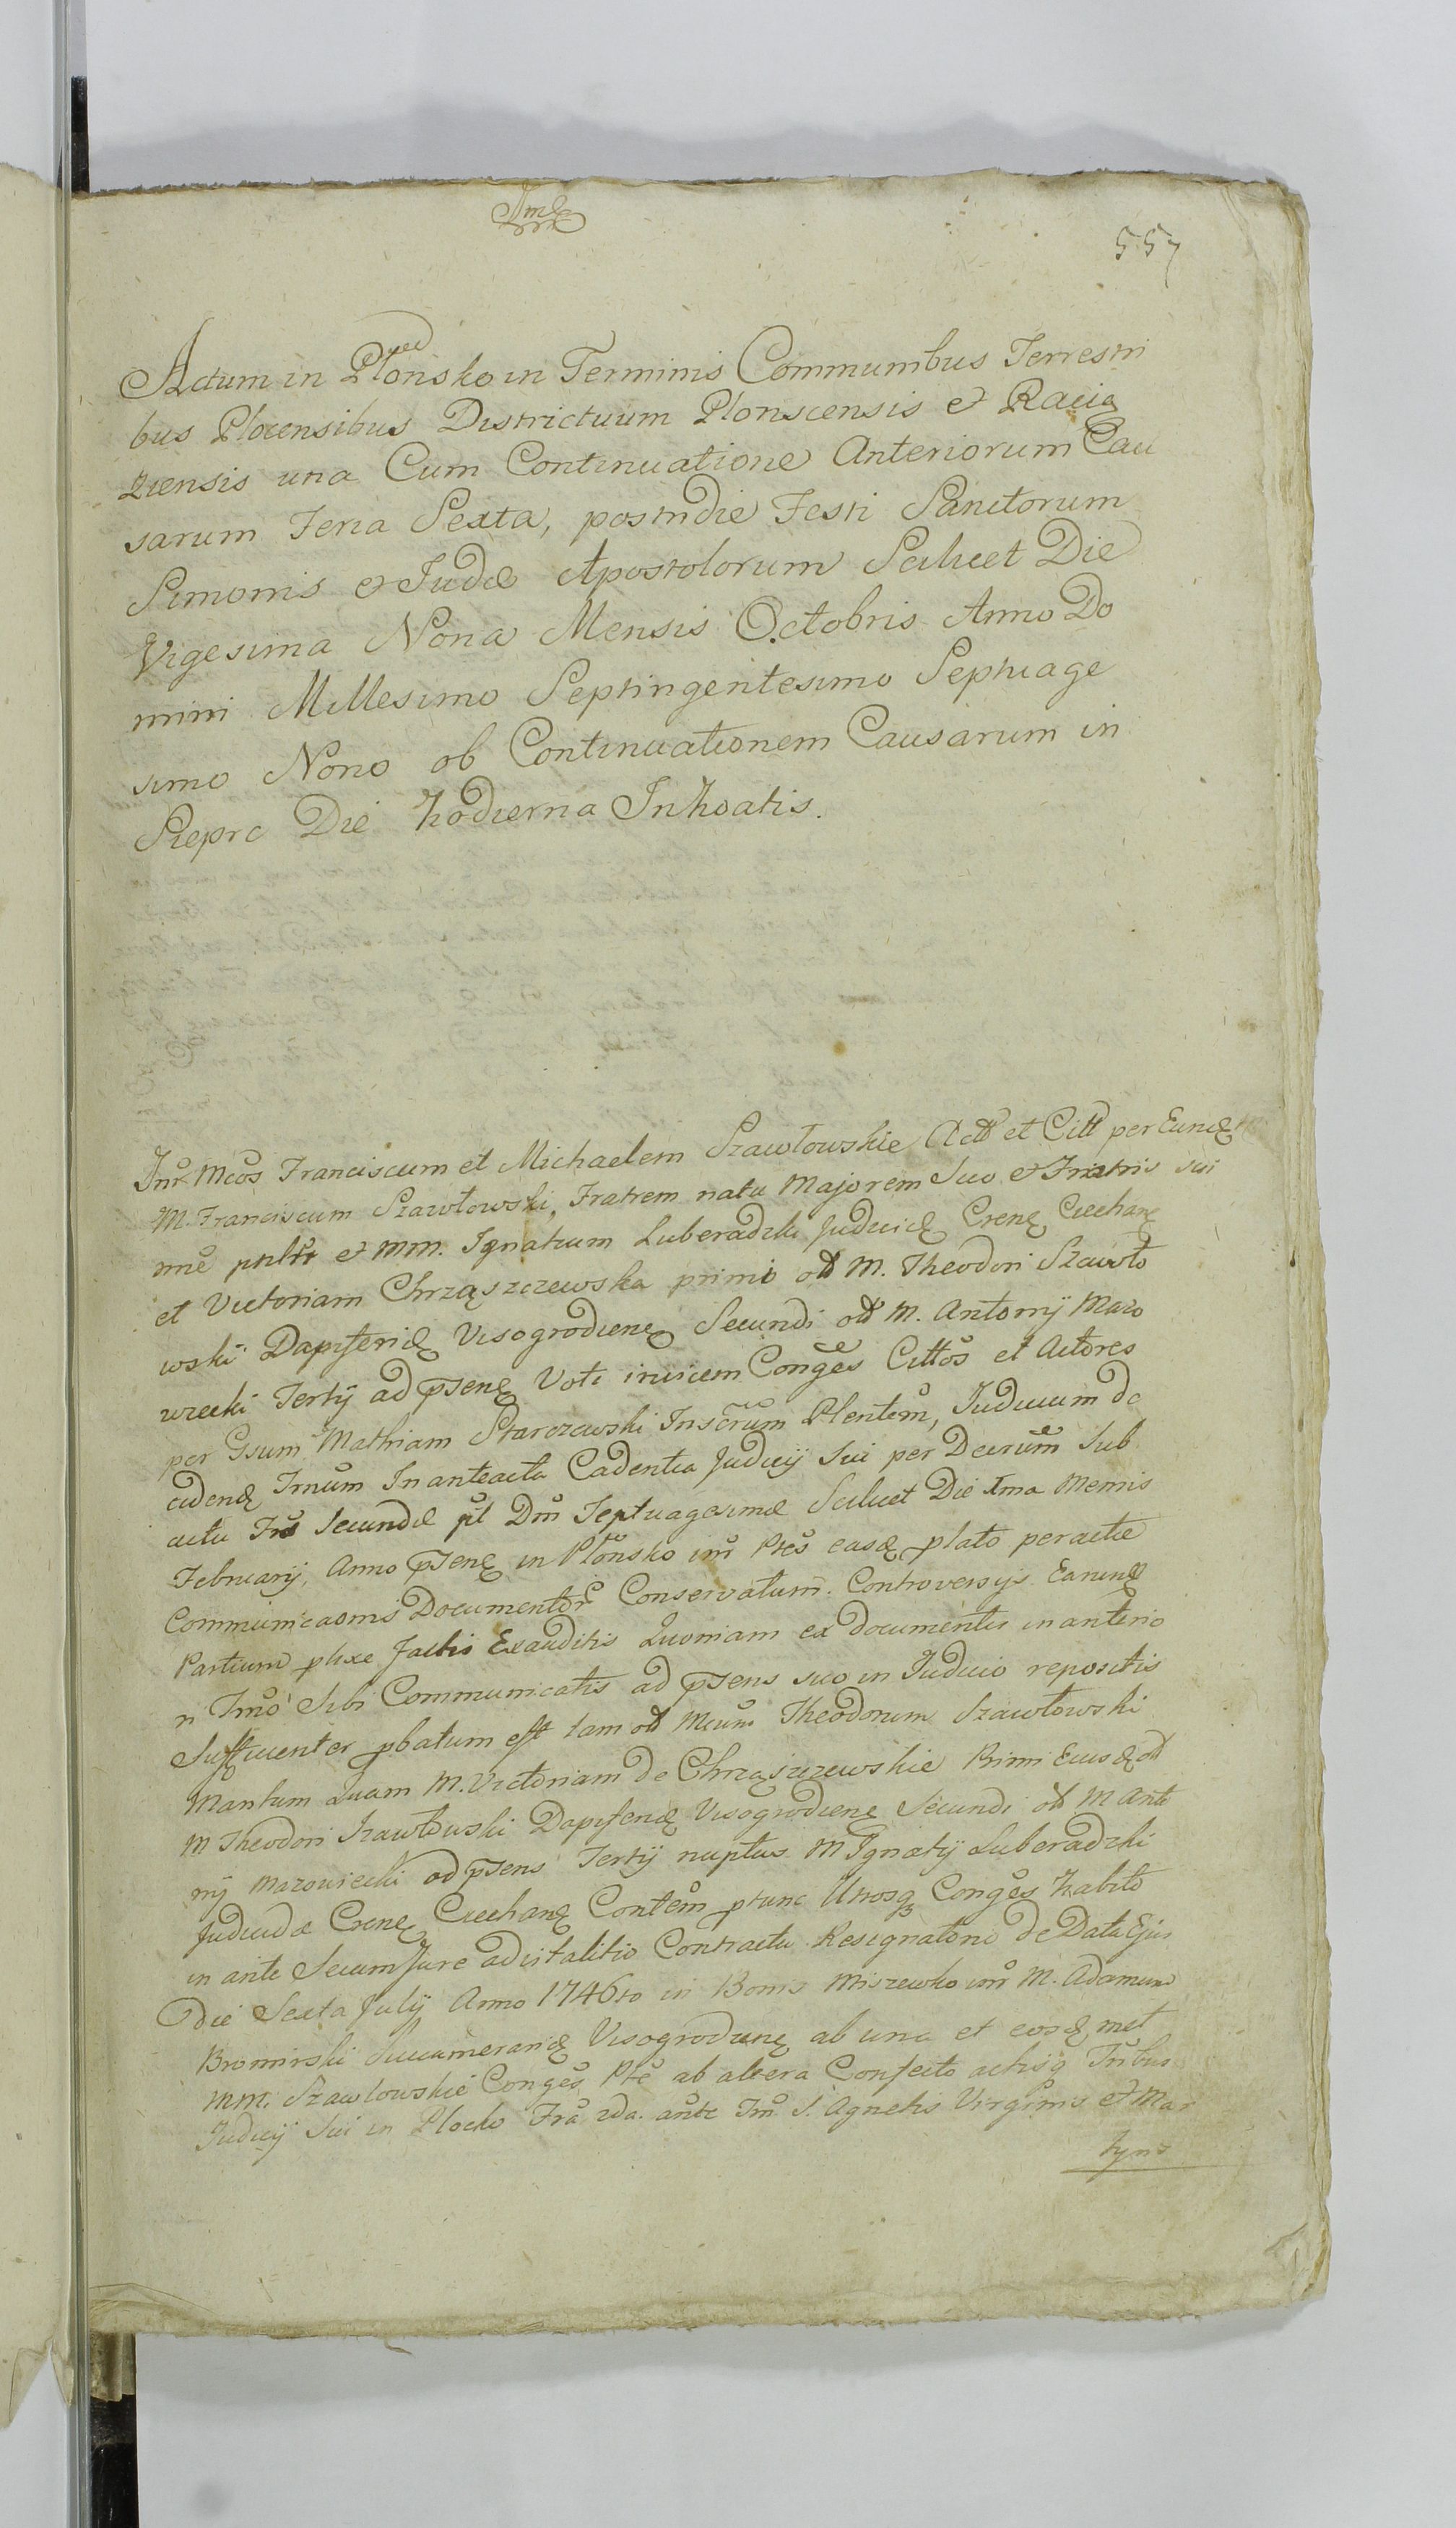 557
Actum in Płońsko in Terminis Communibus Terrestri
bus Plocensibus Districtuum Plonscensis et Racią
ziensis una Cum Continuatione Anteriorum Cau
sarum Feria Sexta, postridie Festi Sanctorum
Simonis et Judæ Apostolorum Scilicet Die
Vigesima Nona Mensis Octobris Anno Do
mini Millesimo Septingentesimo Septuage
simo Nono ob Continuationem Causarum in
Die hodierna Inhoatis.
Inr Mcos Franciscum et Michaelem Szawłowskie Act et Citt per Eund
M. Franciscum Szawłowski, Fratrem natu Majorem Suo et Fratris sui
et MM. Ignatium Luberadzki Judicid Crenę Ciechanę
et Victoriam Chrząszczewska primi olt M. Theodori Szawło
wski Dapiferid Visogrodienę Secundi olt M. Antonij Mazo
wiecki Tertij ad psenę Voti invicem Conges Cittos et Actores
per Gsum Mathiam Starczewski Inscrum Plentem, Judicium de
cidend Trnum In anteacta Cadentia Judicij Sui per Decrum Sub
actu Fra Secunda pt Dm Septuagesimæ Scilicet Die 1ma Mensis
February, Anno psenę in Płonsko inr Ptes easd plato peractæ
Communicaonis Documentor Conservatum. Controversijs Earund
Partium plixe factis Exauditis Quoniam ex documentis in anterio
ri Trno Sibi Communicatis ad psens suo in Judicio repositis
Sufficienter pbatum est tam olt Mcum Theodorum Szawłowski
Maritum Quam M. Victoriam de Chrząszczewskie Primi Eiusd olt
M Theodori Szawłowski Dapiferid Visogrodienę Secundi olt M Anto
nij Mazowiecki ad psens Tertij nuptus M Ignatij Luberadzki
Judicidæ Crenę Ciechanę Contem ptunc Utrosq Conges habito
in ante Secum Jure advitalitio Contractu Resignationis de Data Ejus
die Sexta Julij Anno 1746to in Bonis Miszewko inr M. Adamum
Bromirski Succamerarid Visogrodienę ab una et eosd met
MM. Szawłowskie Conges Pte ab altera Confecto actisq Trribus
Judicij Sui in Plocko Fra 2da. ante Fm S. Agnetis Virginis et Mar
tyris